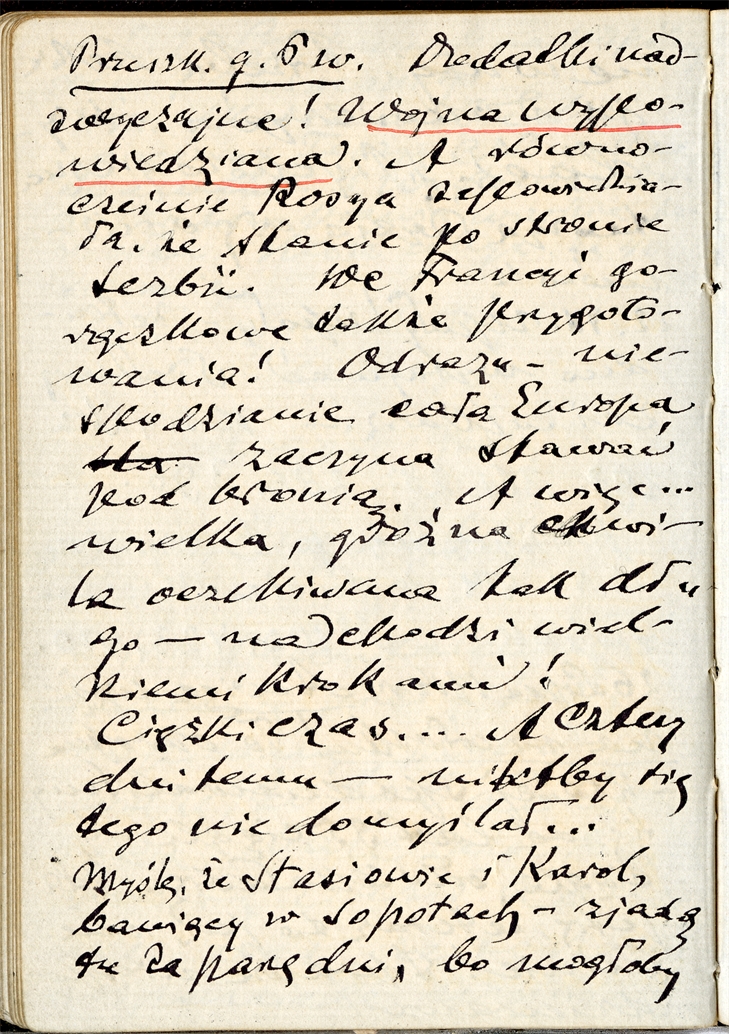 Pruszk. g. 6 w. Dodatki nad-
zwyczajne! Wojna wypo-
wiedziana. A równo-
cześnie Rosya zapowiedzia-
ła, że stanie po stronie
Serbii. We Francyi go-
rączkowe także przygoto-
wania! Odrazu – nie-
spodzianie cała Europa
sta zaczyna stawać
pod bronią. A więc...
wielka, groźna chwi-
la oczekiwana tak dłu-
go — nadchodzi wiel-
kiemi krokami!
Ciężki czas.... A cztery
dni temu — niktby się
tego nie domyślał...
Myślę, że Stasiowie i Karol,
bawiący w Sopotach – zjadą
tu za parę dni, bo mogłoby